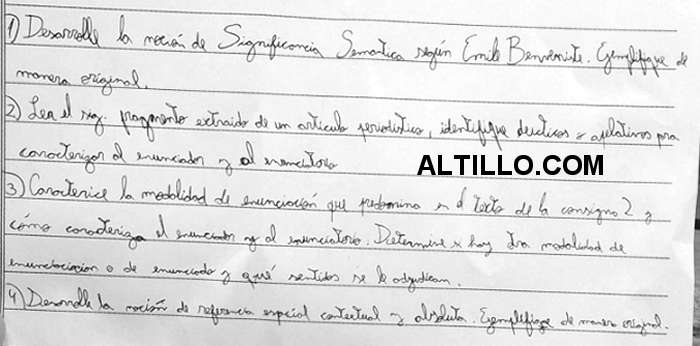 1) Desarrolle la noción de Significancia Semántica según Emile Benveniste. Ejemplifique de
manera original.
2) Lea el sig. fragmento extraido de un articulo periodístico, identifique deícticos y apelativos para
caracterizar al enunciador y al enunciatario
ALTILLO.COM
3) Caracterice la modalidad de enunciación que predomina en el texto de la consigna 2 y
cómo caracteriza el enunciador y al enunciatario. Determine si hay otra modalidad de
enunciación o de enunciado y qué sentidos se le adjudican.
4) Desarrolle la noción de referencia espacial contextual y absoluta. Ejemplifique de manera original.